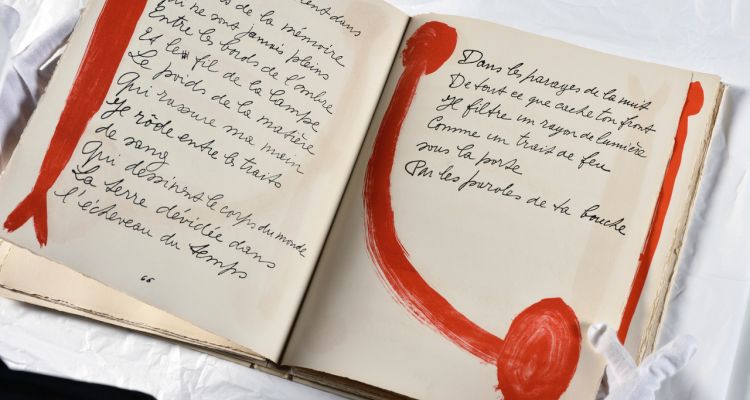 dans
de la mémoire
ne sont jamais pleins
Entre les bords de l'ombre
Et le fil de la lampe
Le poids de la matière
Qui rassure ma main
Je rôde entre les traits
de sang
Qui dessinent le corps du monde
La terre dévidée dans
l'écheveau du temps
66
Dans les parages de la nuit
De tout ce que cache ton front
Il filtre un rayon de lumière
Comme un trait de feu
sous la porte
Par les paroles de ta bouche